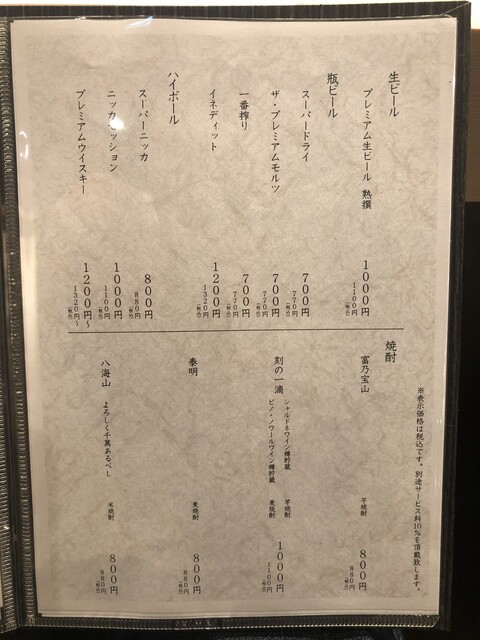 生ビール
プレミアム生ビール 熟撰 1000円
1100円(税込)
瓶ビール
スーパードライ 700円
770円(税込)
ザ・プレミアムモルツ 700円
770円(税込)
一番搾り 700円
770円(税込)
イネディット 1200円
1320円(税込)
ハイボール
スーパーニッカ 800円
880円(税込)
ニッカセッション 1000円
1100円(税込)
プレミアムウイスキー 1200円～
1320円～(税込)
※表示価格は税込です。別途サービス料10%を頂戴致します。
焼酎
富乃宝山 芋焼酎 800円
880円(税込)
刻の一滴 シャルドネワイン樽貯蔵 芋焼酎
ピノ・ノワールワイン樽貯蔵 麦焼酎 1000円
1100円(税込)
泰明 麦焼酎 800円
880円(税込)
八海山 よろしく千萬あるべし 米焼酎 800円
880円(税込)